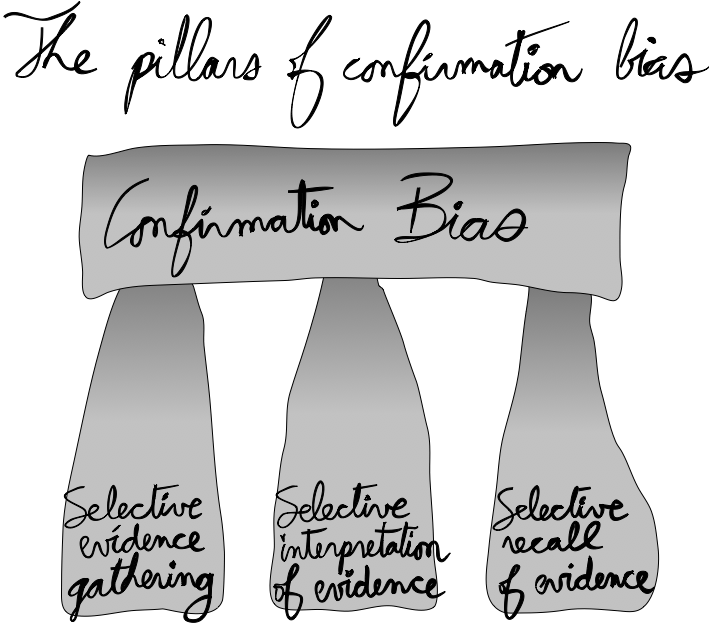 The pillars of confirmation bias
Confirmation Bias
Selective
evidence
gathering
Selective
interpretation
of evidence
Selective
recall
of evidence